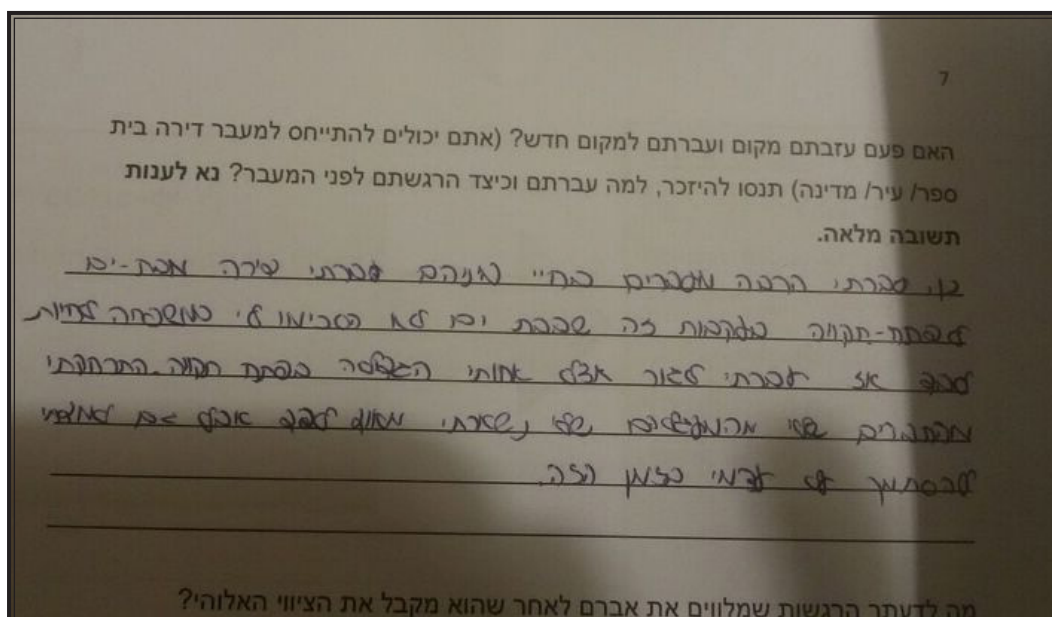 7
האם פעם עזבתם מקום ועברתם למקום חדש? (אתם יכולים להתייחס למעבר דירה בית
ספר/ עיר/ מדינה) תנסו להיזכר, למה עברתם וכיצד הרגשתם לפני המעבר? נא לענות
תשובה מלאה.
כן, עברתי הרבה מעברים בחיי ביניהם עברתי דירה מבת-ים
לפתח-תקווה בעקבות זה שבבת ים לא הסכימו לי במשפחה לחיות
לבד אז עברתי לגור אצל אחותי הגדולה בפתח תקוה. התרחקתי
מהחברים שלי מהמעגלים שלי נשארתי מאוד לבד אבל גם למדתי
להסתמך על עצמי בזמן הזה.
מה לדעתך הרגשות שמלווים את אברם לאחר שהוא מקבל את הציווי האלוהי?